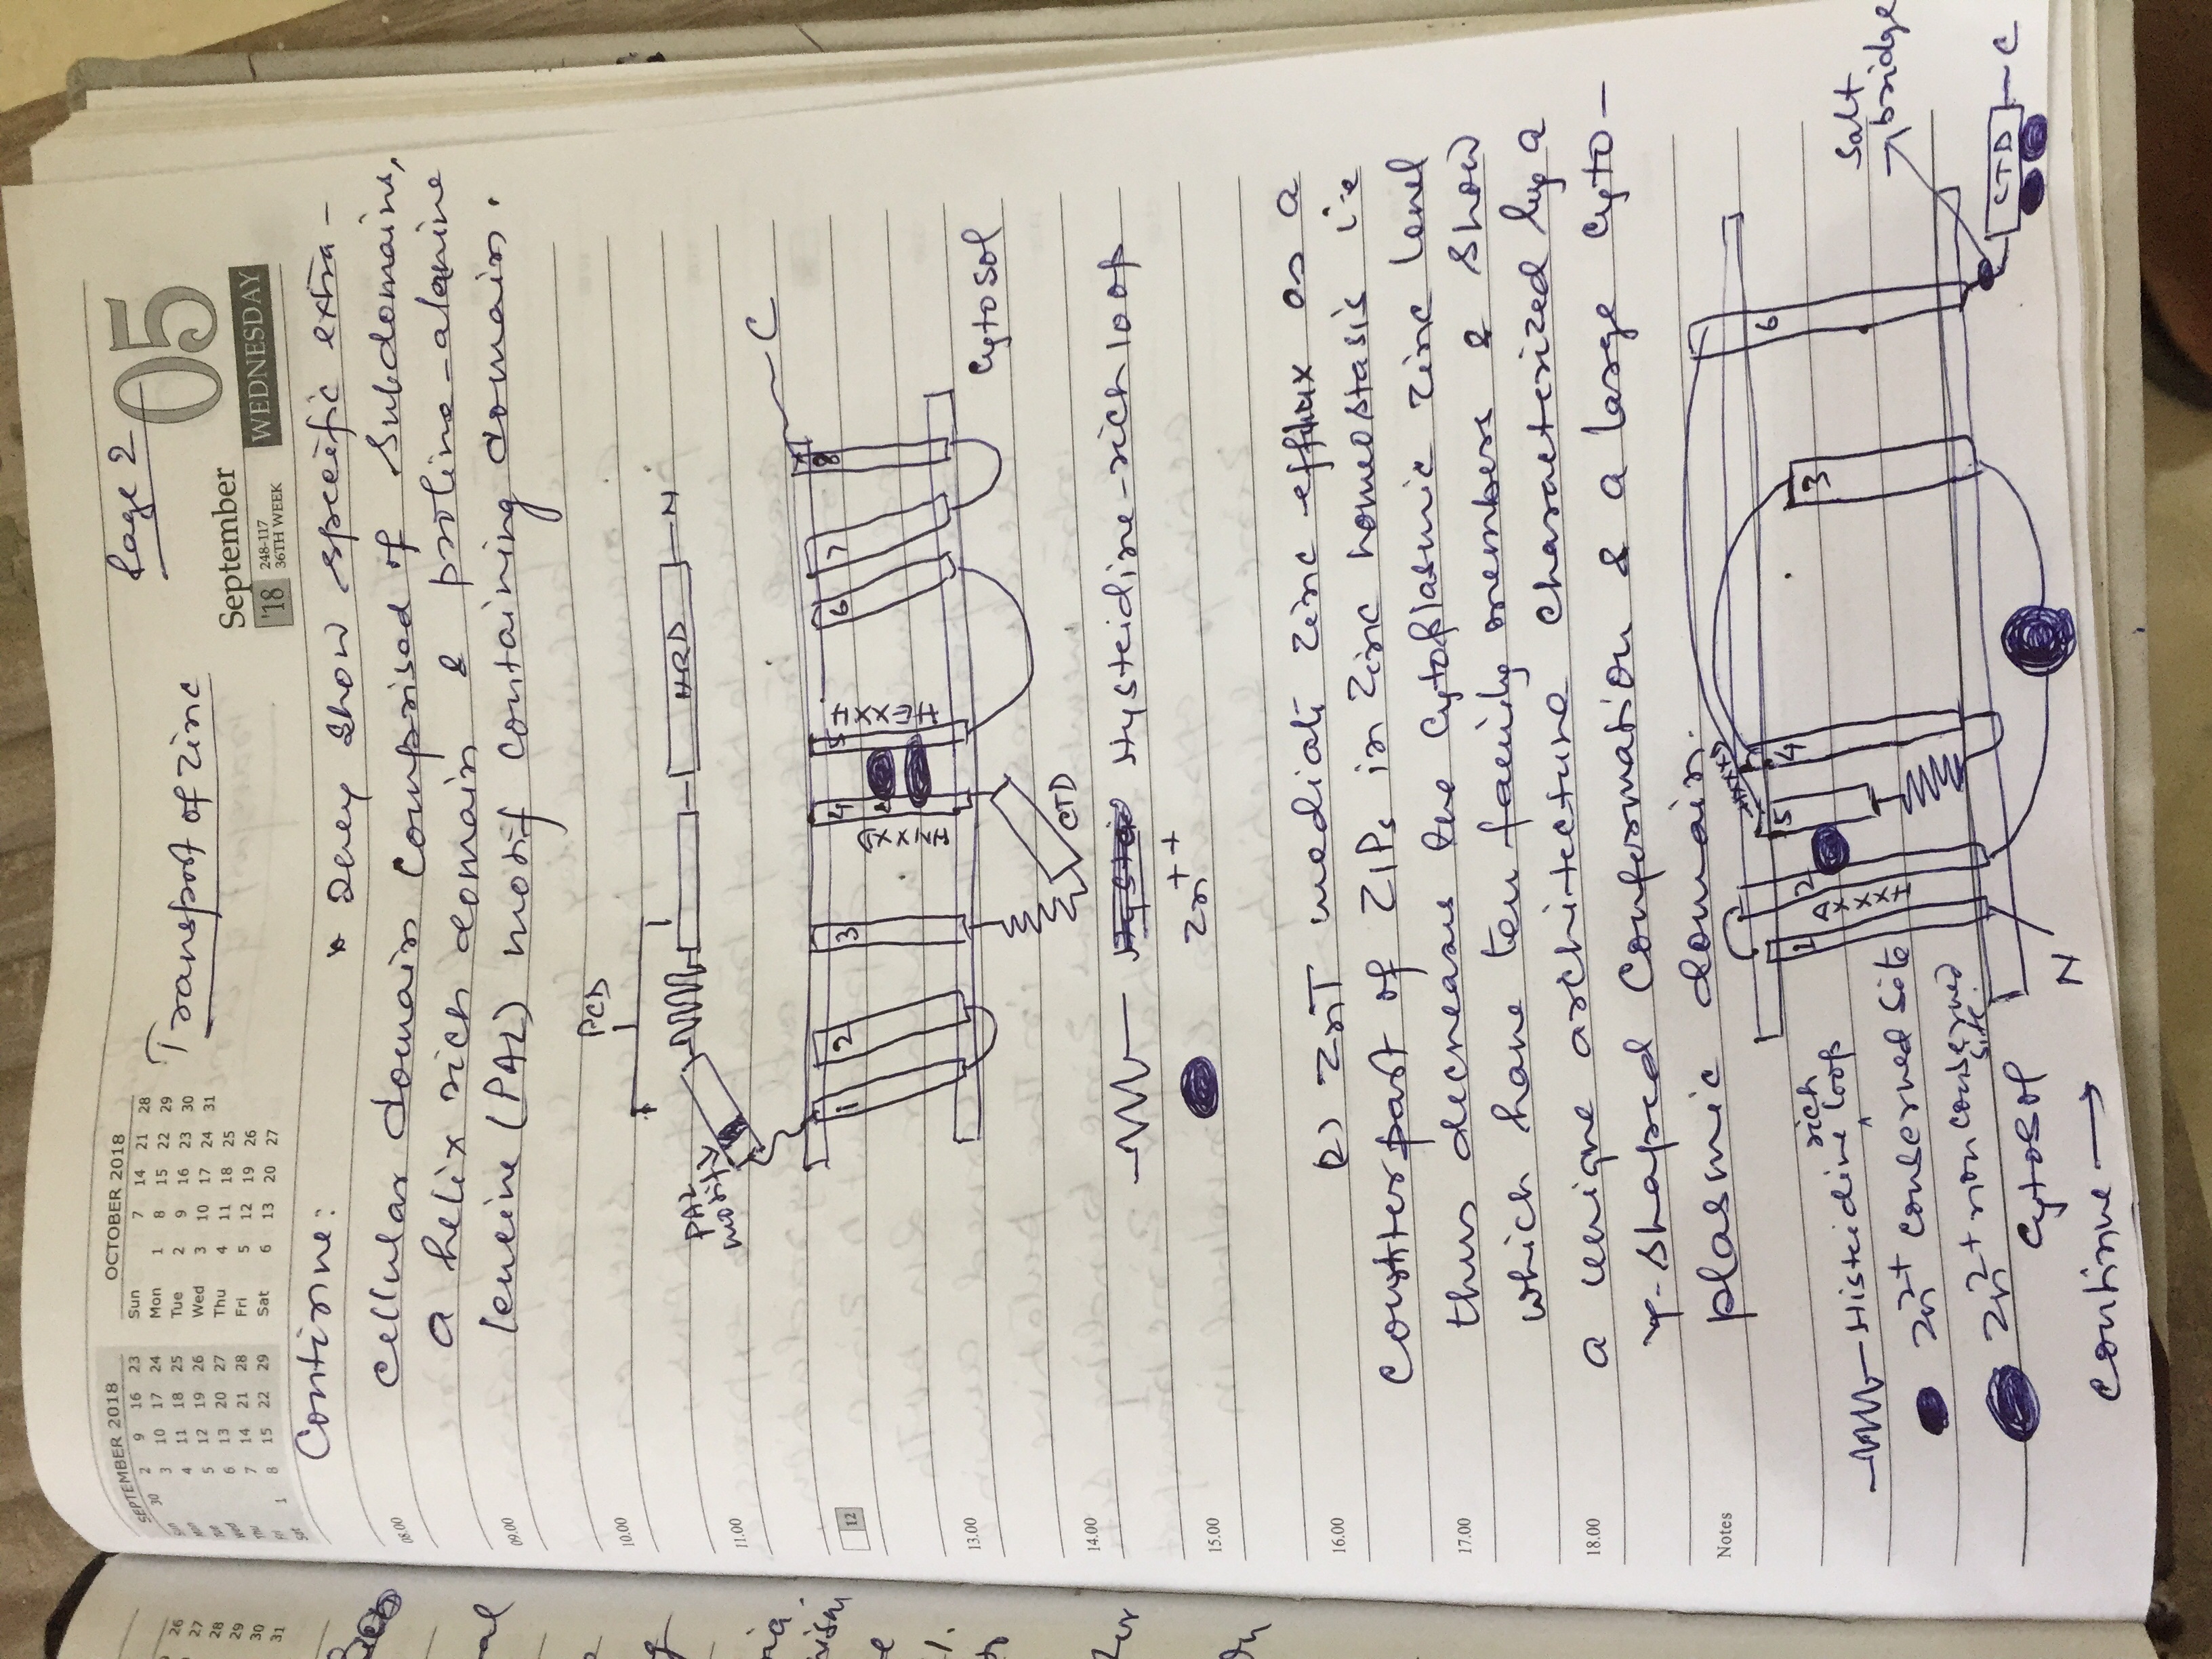 SEPTEMBER 2018
30 2 9 16 23
3 10 17 24
4 11 18 25
5 12 19 26
6 13 20 27
7 14 21 28
1 8 15 22 29
OCTOBER 2018
Sun 7 14 21 28
Mon 1 8 15 22 29
Tue 2 9 16 23 30
Wed 3 10 17 24 31
Thu 4 11 18 25
Fri 5 12 19 26
Sat 6 13 20 27
Page 2
September 05
'18 248-117
36TH WEEK
WEDNESDAY
Transport of Zinc
Continue:
* They show specific extra-
08.00
cellular domain comprised of subdomains,
a helix rich domain & proline-alanine
09.00
leucine (PAL) motif containing domain.
10.00
PCD
11.00
PAL
motif
HRD
N
C
12
1 2 3 4 5 6 7 8
HNXXD
HEXXH
13.00
Cytosol
CTD
14.00
Hysteidine-rich loop
15.00
Zn++
16.00
2) ZnT mediate Zinc efflux as a
counterpart of ZIPs in Zinc homeostasis i.e
17.00
thus decreases the cytoplasmic Zinc level
which have ten family members & show
18.00
a unique architecture characterized by a
Y-shaped conformation & a large cyto-
Notes
plasmic domain.
1 2 5 4 3 6
Histeidine rich loop
Zn2+ conserved site
Zn2+ non conserved site
Salt
bridge
CTD
C
N
Cytosol
Continue →
26
27
28
29
30
31